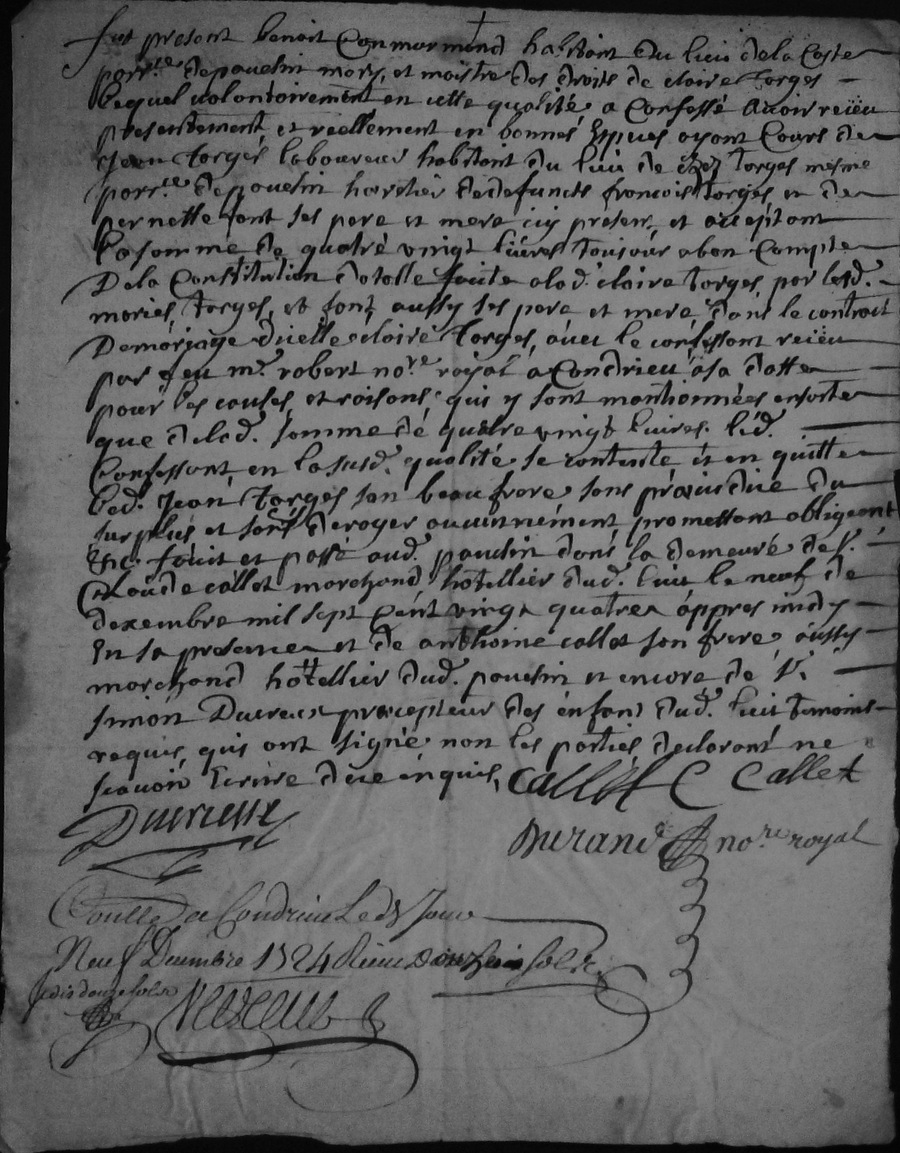 fut present benoit Conmormend habitant du lieu dela Coste
parr.se depauesin mary, et maistre des droits de claire Torges
Lequel volontairement en cette qualité a Confessé avoir receu
presentement et reellement en bonnes Especes ayant Cours de
Jean Torges laboureur habitant du lieu de chez Torges mesme
parr.se depauesin heritier dedefuncts francois Torges, et de
pernette font ses pere et mere cy present, et acceptant
La somme de quatre vingt livres Tousjour abon Compte
Dela Constitution dotalle faite alad. claire Torges, par lesd.
mariés Torges, et font aussy ses pere et mere dans le contract
Demariage dicelle claire Torges, avec le confessant receu
par feu m.e robert no.re royal a Condrieu asa datte
pour les causes, et raisons qui y sont mantionnées ensorte
que delad. somme de quatre vingt livres. led.
Confessant en lasusd. qualité se contente et en quitte
led. Jean Torges son beaufrere sans prejudice du
surplus et sans deroger aucunnement promettant obligeant
&c. fait et passé aud. pauesin dans la demeure de s.
Claude callet marchand hotellier dud. lieu le neuf de
dexembre mil sept cent vingt quatre appres midy
En sa presence et de anthoine callet son frere aussy
marchand hottellier dud. pauesin et encore de s.
simon Ducreux precepteur des enfans dud. lieu temoins
requis, qui ont signé non les parties declarant ne
scavoir Ecrire dece enquis, Callet C Callet
Ducreux
Durand no.re royal
Conllé a Condrieu Led. Jour
Neuf Decembre 1724 Receu douze sols